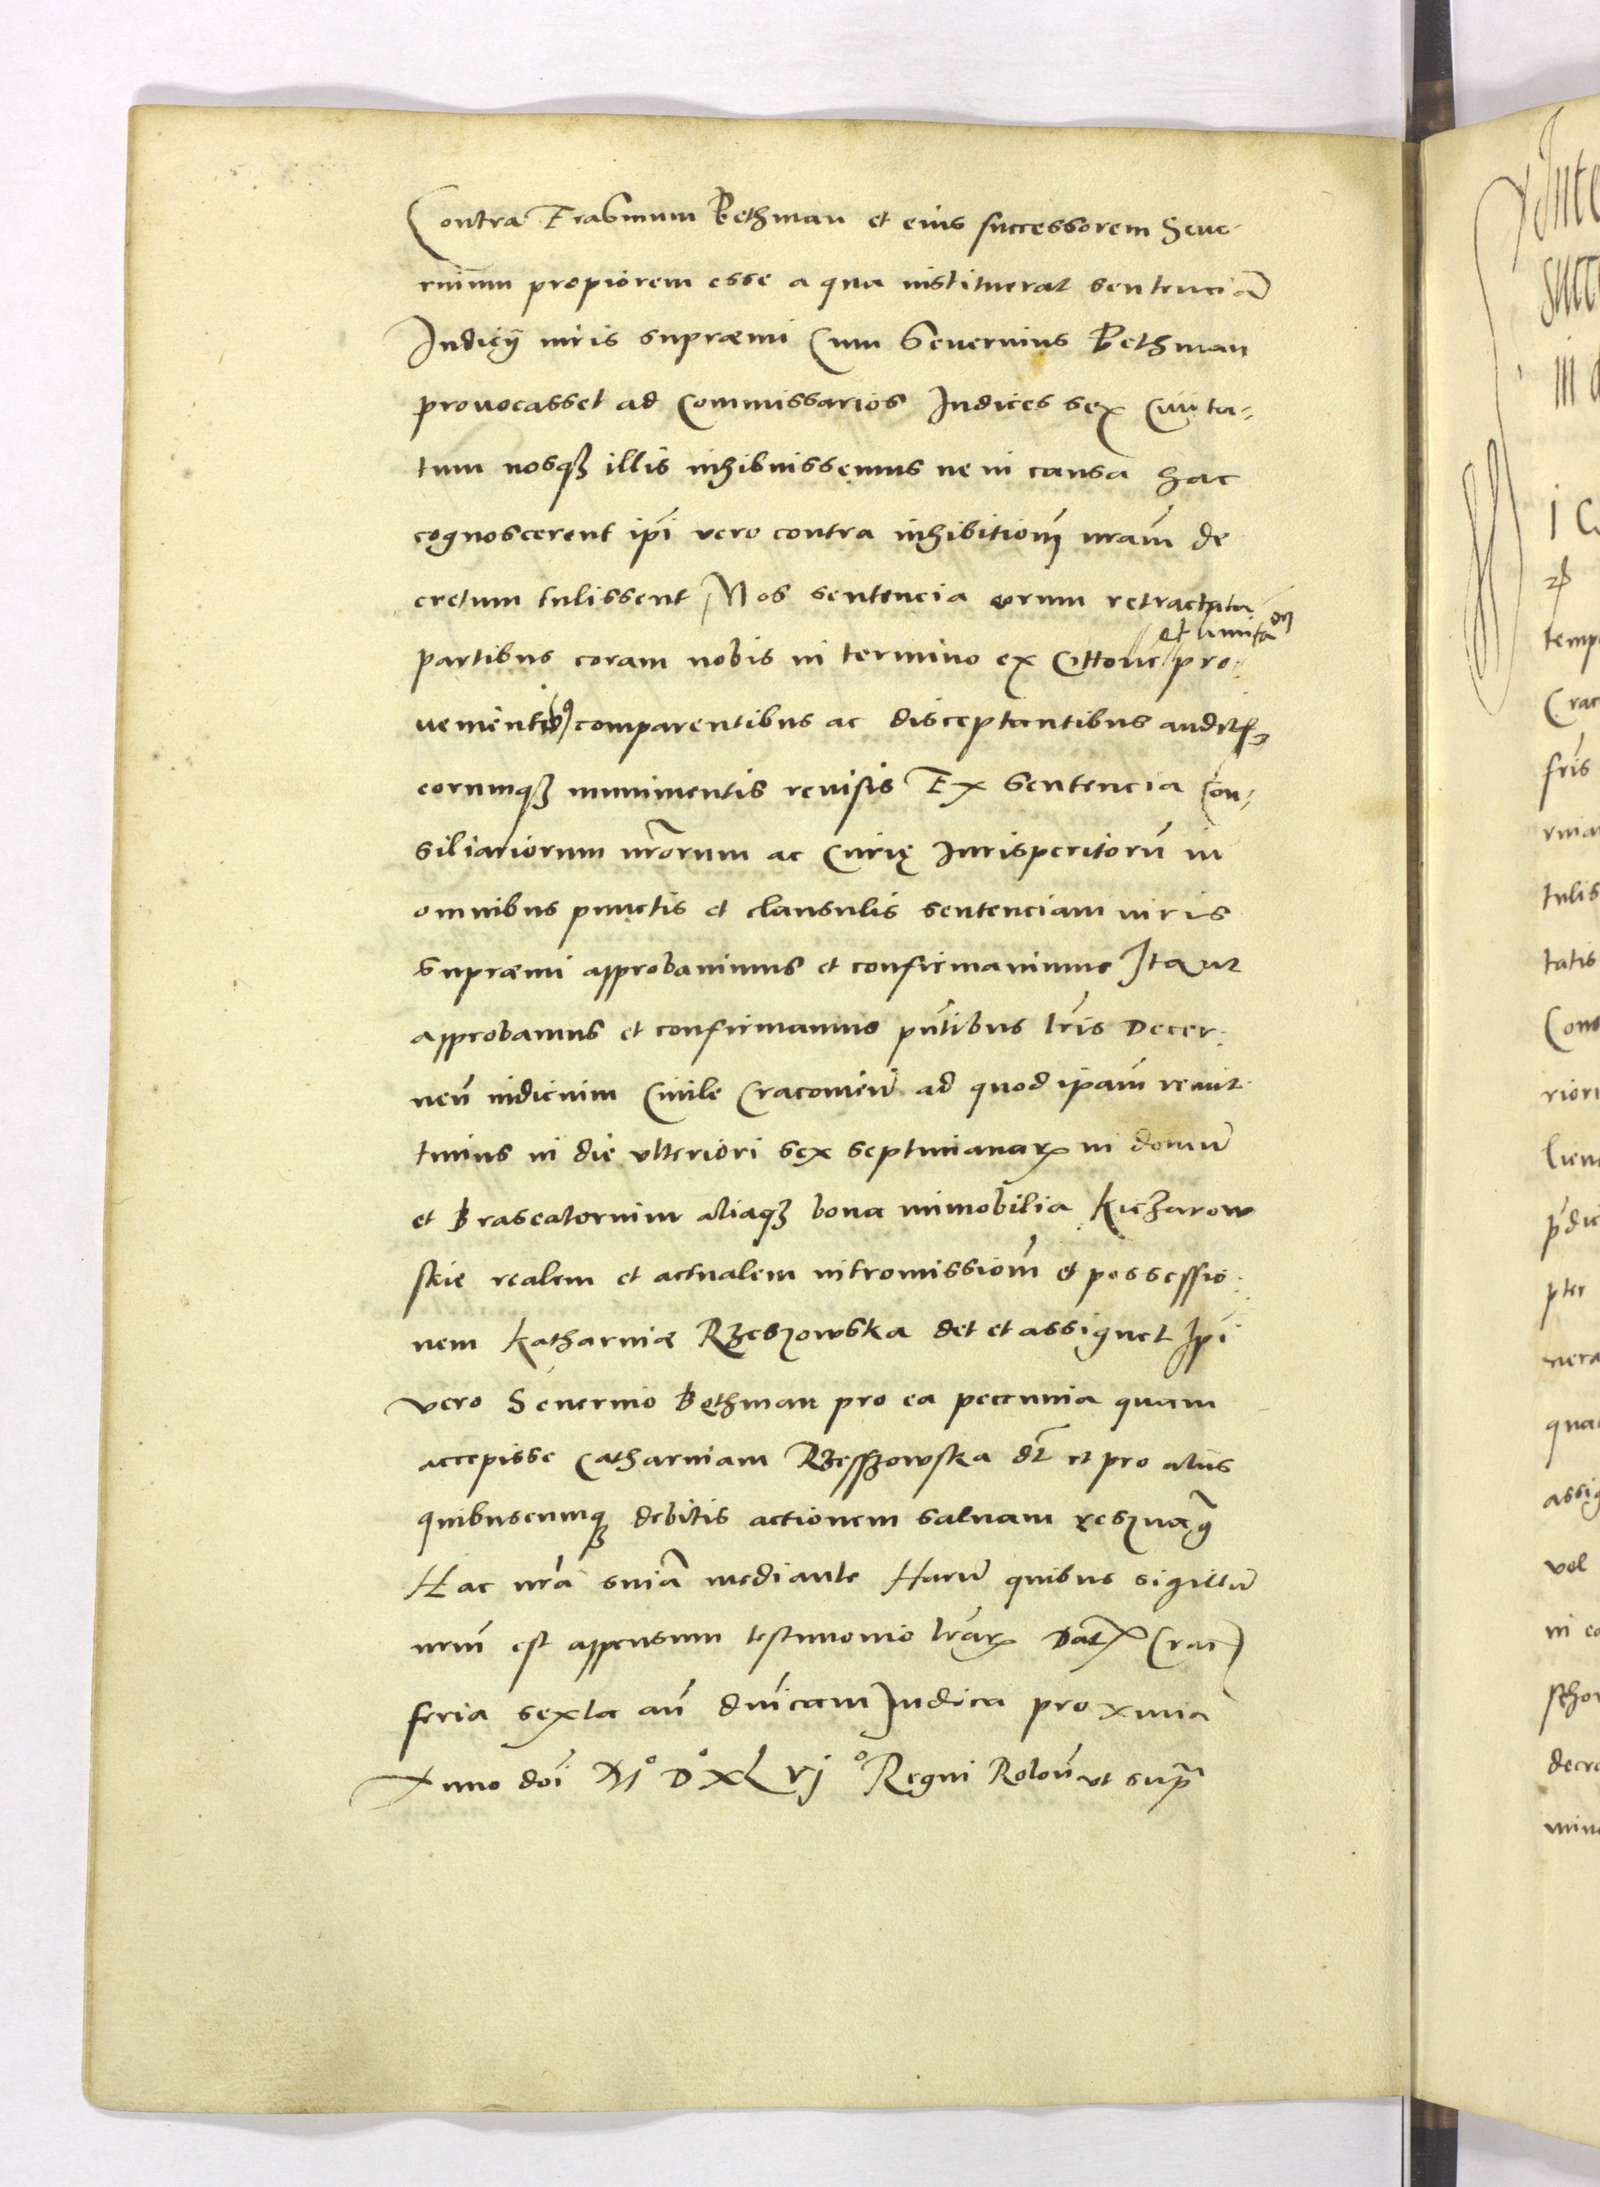 Contra Erasmum Bethman et eius successorem Seue-
rinum propiorem esse a qua instituerat sentenciã
Iudicÿ iuris supræmi Cum Seuerinus Bethman
prouocasset ad Commissarios Iudices sex Ciuita-
tum nosqꝫ illis inhibuissemus ne in causa hac
cognoscerent ip̃i vero contra inhibitionẽ nr̃am de
cretum tulissent Nos sentencia eorum retractata
et limitaõn
partibus coram nobis in termino ex Cittone pro-
uenientibꝰ comparentibus ac disceptantibus auditꝭ
eorumqꝫ munimentis reuisis Ex Sentencia Con-
siliariorum nr̃orum ac Curię Iurisperitorũ in
omnibus punctis et clausulis sentenciam iuris
supræmi approbauimus et confirmauimus Ita ut
approbamus et confirmamus pñtibus lr̃is Decer-
neñ iudicium Ciuile Cracouieñ ad quod ip̃am remit
timus in die ulteriori sex septimanaꝝ in domũ
et Braseatorium aliaqꝫ bona immobilia Kiczarow
skie realem et actualem intromissionẽ et possessio-
nem Katharinæ Rzeszowska det et assignet Ip̃i
vero Seuerino Bethman pro ea peccunia quam
accepisse Catharinam Rzesszowska dt̃ et pro aliis
quibuscumqꝫ debitis actionem saluam
Hac nr̃a sñia mediante Harũ quibus sigillũ
nr̃m est appensum testimonio lr̃aꝝ Datꝭ Crac
feria sexta añ dñicam Iudica proxima
Anno dñi M° D° XLvj ° Regni Poloñ ut supra